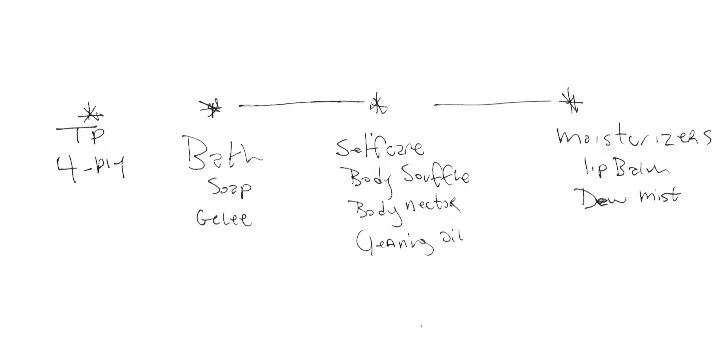 TP
4-ply
Bath
Soap
Gelee
Selfcare
Body Souffle
Body nectar
Cleaning oil
Moisturizers
lip Balm
Dew mist